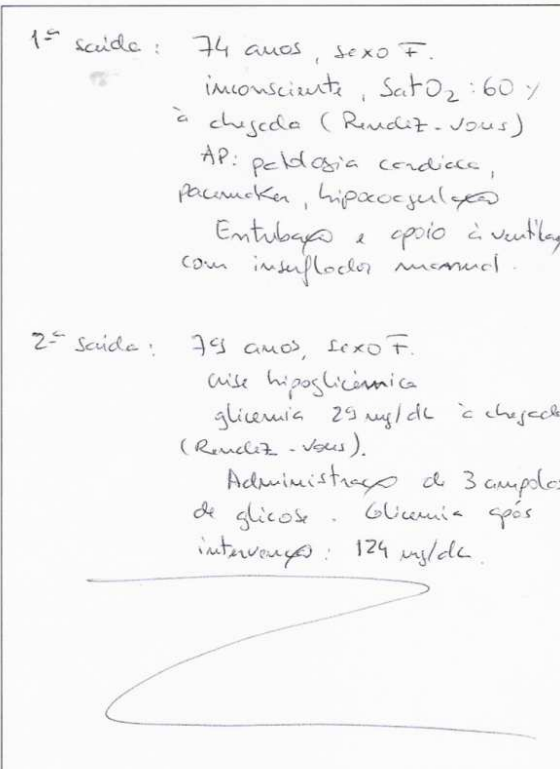 1ª saída : 74 anos, sexo F.
inconsciente, SatO2 : 60 %
à chegada (Rendez-vous)
AP: patologia cardíaca,
pacemaker, hipocoagulação
Entubação e apoio à ventilaç
com insuflador manual.
2ª saída : 79 anos, sexo F.
crise hipoglicémica
glicemia 29 mg/dL à chegada
(Rendez-vous).
Administração de 3 ampolas
de glicose. Glicemia após
intervenção : 124 mg/dL.